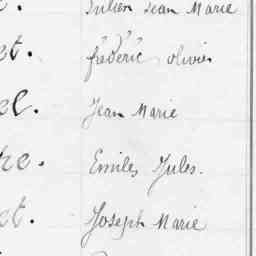 Julien Jean Marie
et. frédéric olivier
el. Jean Marie
he. Emiles Jules.
et. Joseph Marie